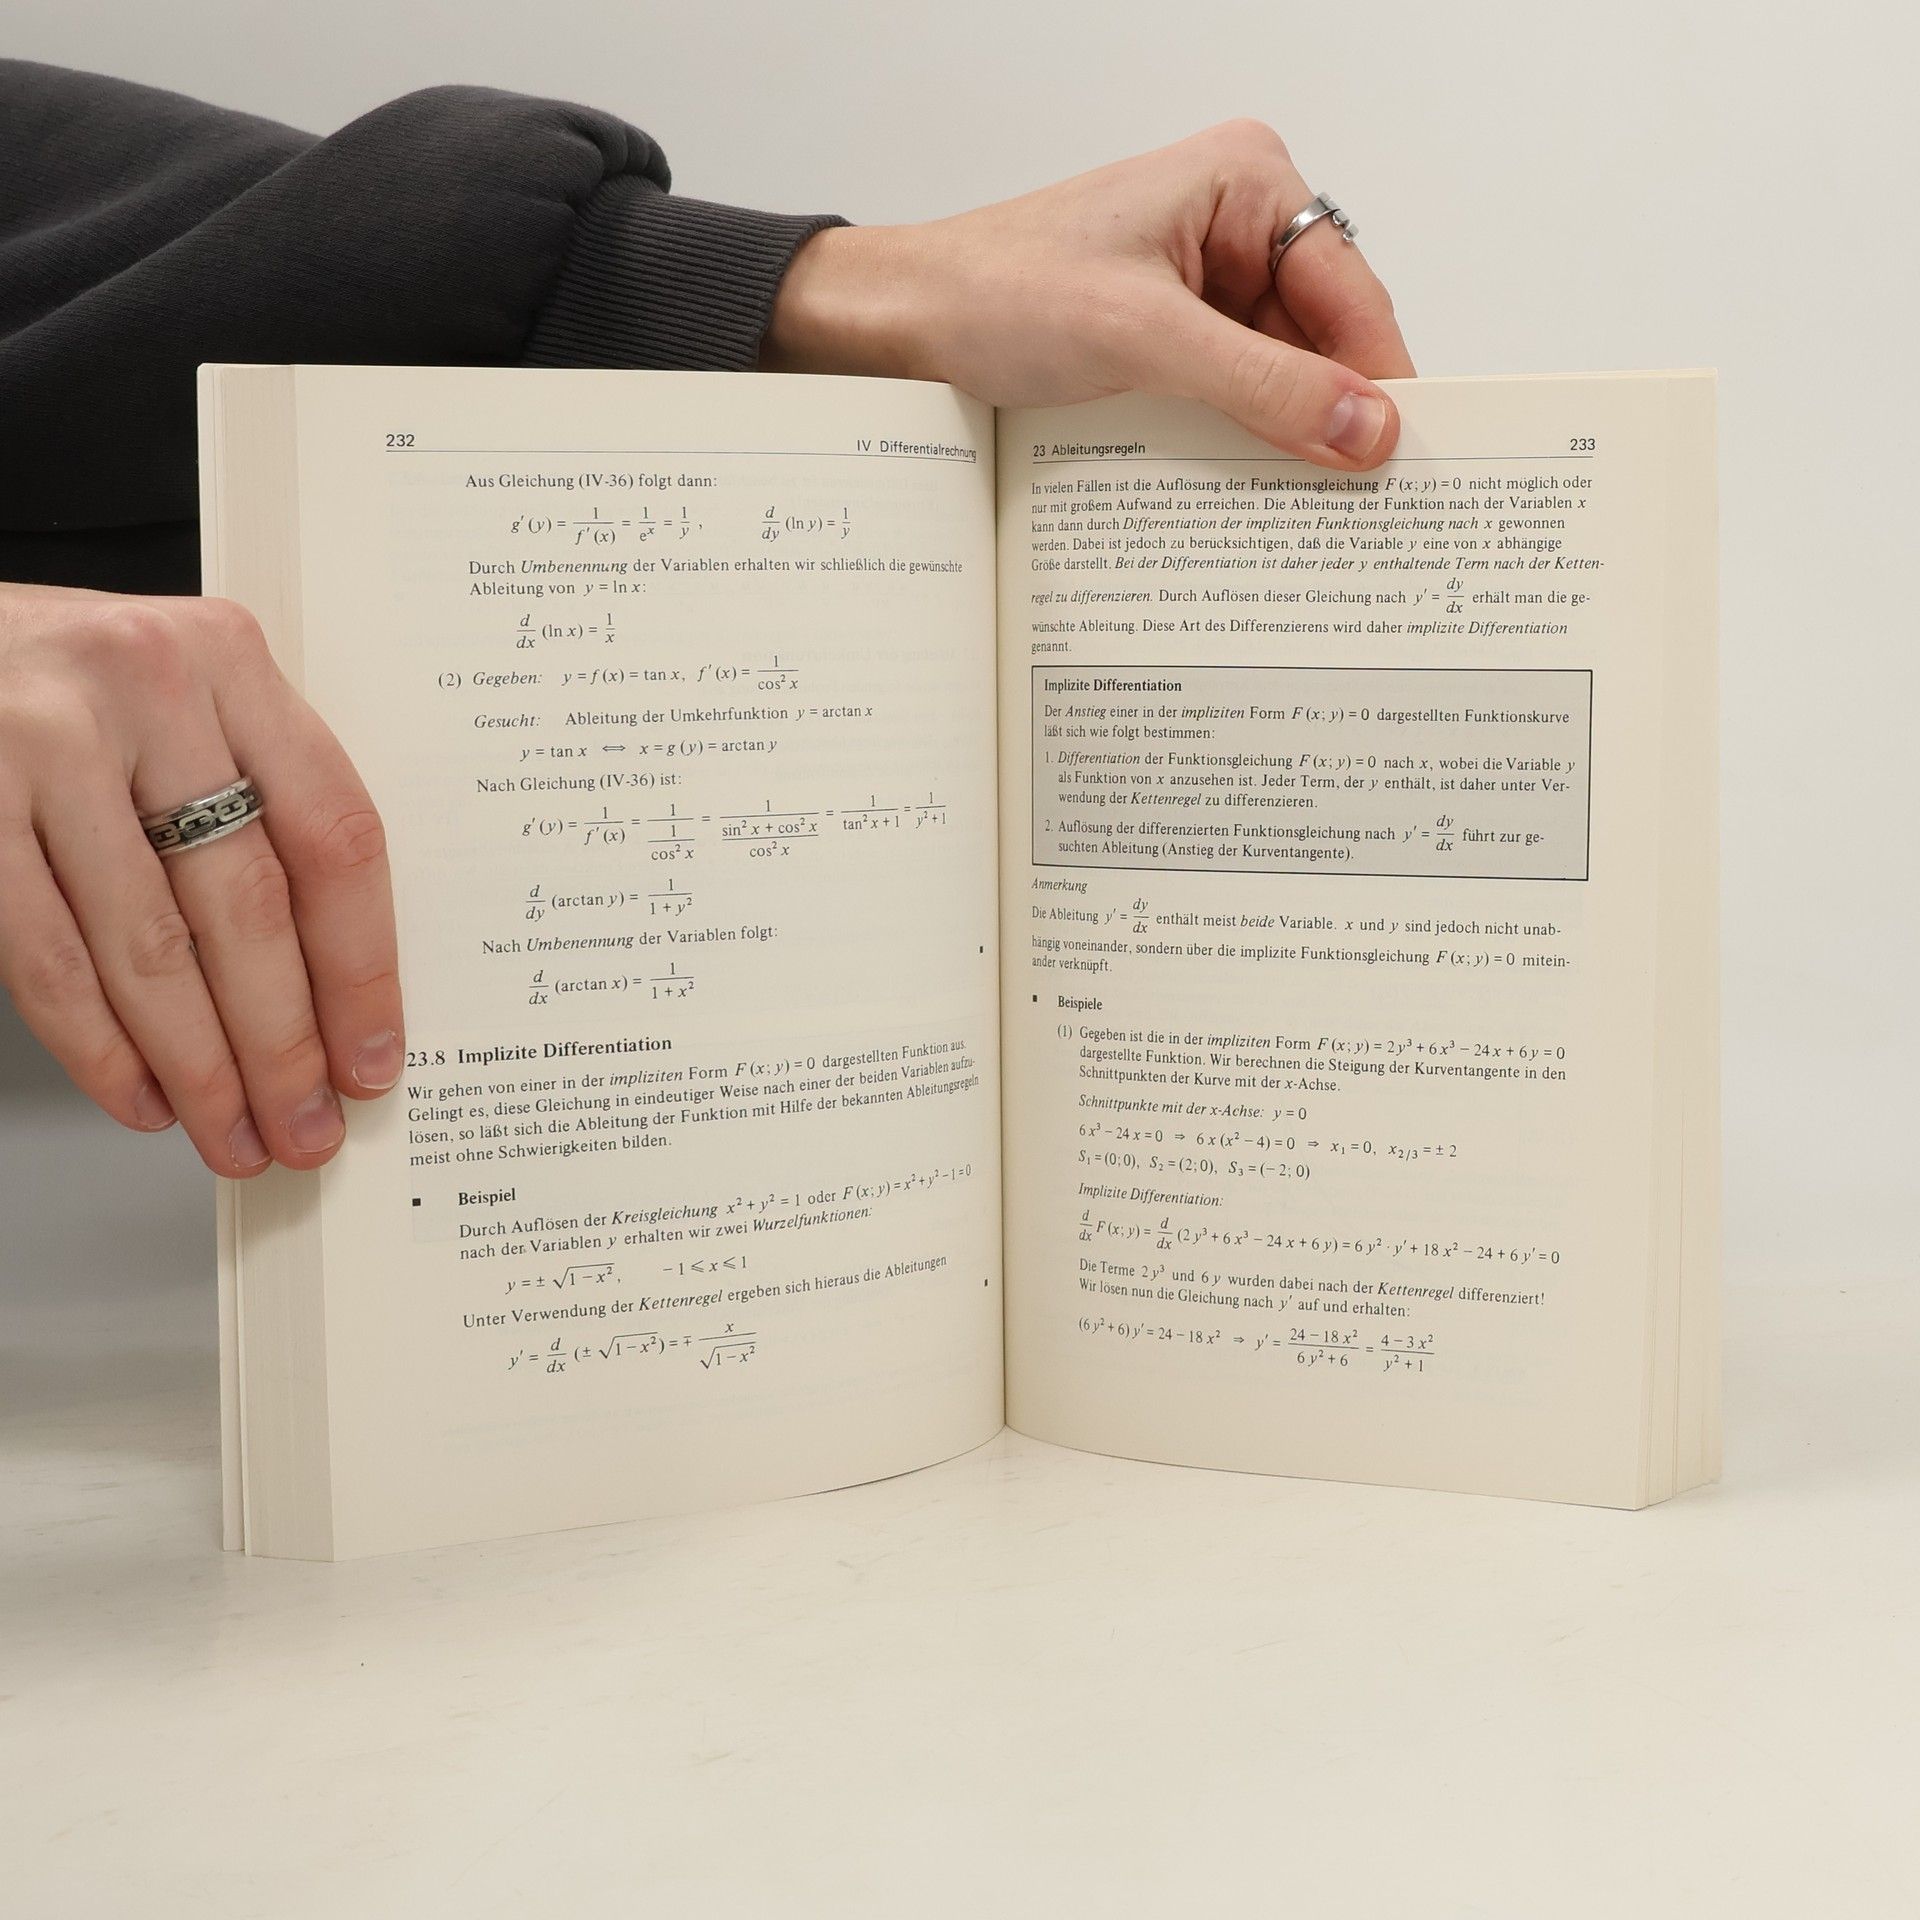 232
IV Differentialrechnung
Aus Gleichung (IV-36) folgt dann:
g′(y) = 1/f′(x) = 1/eˣ = 1/y , d/dy (ln y) = 1/y
Durch Umbenennung der Variablen erhalten wir schließlich die gewünschte
Ableitung von y = ln x:
d/dx (ln x) = 1/x
(2) Gegeben: y = f(x) = tan x, f′(x) = 1/cos² x
Gesucht: Ableitung der Umkehrfunktion y = arctan x
y = tan x ⟺ x = g(y) = arctan y
Nach Gleichung (IV-36) ist:
g′(y) = 1/f′(x) = 1/(1/cos² x) = 1/((sin² x + cos² x)/cos² x) = 1/(tan² x + 1) = 1/(y² + 1)
d/dy (arctan y) = 1/(1 + y²)
Nach Umbenennung der Variablen folgt:
d/dx (arctan x) = 1/(1 + x²)
23.8 Implizite Differentiation
Wir gehen von einer in der impliziten Form F(x; y) = 0 dargestellten Funktion aus.
Gelingt es, diese Gleichung in eindeutiger Weise nach einer der beiden Variablen aufzu-
lösen, so läßt sich die Ableitung der Funktion mit Hilfe der bekannten Ableitungsregeln
meist ohne Schwierigkeiten bilden.
■ Beispiel
Durch Auflösen der Kreisgleichung x² + y² = 1 oder F(x; y) = x² + y² − 1 = 0
nach der Variablen y erhalten wir zwei Wurzelfunktionen:
y = ± √(1 − x²), −1 ⩽ x ⩽ 1
Unter Verwendung der Kettenregel ergeben sich hieraus die Ableitungen
y′ = d/dx (± √(1 − x²)) = ∓ x/√(1 − x²)
23 Ableitungsregeln
233
In vielen Fällen ist die Auflösung der Funktionsgleichung F(x; y) = 0 nicht möglich oder
nur mit großem Aufwand zu erreichen. Die Ableitung der Funktion nach der Variablen x
kann dann durch Differentiation der impliziten Funktionsgleichung nach x gewonnen
werden. Dabei ist jedoch zu berücksichtigen, daß die Variable y eine von x abhängige
Größe darstellt. Bei der Differentiation ist daher jeder y enthaltende Term nach der Ketten-
regel zu differenzieren. Durch Auflösen dieser Gleichung nach y′ = dy/dx erhält man die ge-
wünschte Ableitung. Diese Art des Differenzierens wird daher implizite Differentiation
genannt.
Implizite Differentiation
Der Anstieg einer in der impliziten Form F(x; y) = 0 dargestellten Funktionskurve
läßt sich wie folgt bestimmen:
1. Differentiation der Funktionsgleichung F(x; y) = 0 nach x, wobei die Variable y
als Funktion von x anzusehen ist. Jeder Term, der y enthält, ist daher unter Ver-
wendung der Kettenregel zu differenzieren.
2. Auflösung der differenzierten Funktionsgleichung nach y′ = dy/dx führt zur ge-
suchten Ableitung (Anstieg der Kurventangente).
Anmerkung
Die Ableitung y′ = dy/dx enthält meist beide Variable. x und y sind jedoch nicht unab-
hängig voneinander, sondern über die implizite Funktionsgleichung F(x; y) = 0 mitein-
ander verknüpft.
■ Beispiele
(1) Gegeben ist die in der impliziten Form F(x; y) = 2y³ + 6x³ − 24x + 6y = 0
dargestellte Funktion. Wir berechnen die Steigung der Kurventangente in den
Schnittpunkten der Kurve mit der x-Achse.
Schnittpunkte mit der x-Achse: y = 0
6x³ − 24x = 0 ⇒ 6x(x² − 4) = 0 ⇒ x₁ = 0, x₂/₃ = ± 2
S₁ = (0; 0), S₂ = (2; 0), S₃ = (−2; 0)
Implizite Differentiation:
d/dx F(x; y) = d/dx (2y³ + 6x³ − 24x + 6y) = 6y² · y′ + 18x² − 24 + 6y′ = 0
Die Terme 2y³ und 6y wurden dabei nach der Kettenregel differenziert!
Wir lösen nun die Gleichung nach y′ auf und erhalten:
(6y² + 6) y′ = 24 − 18x² ⇒ y′ = (24 − 18x²)/(6y² + 6) = (4 − 3x²)/(y² + 1)